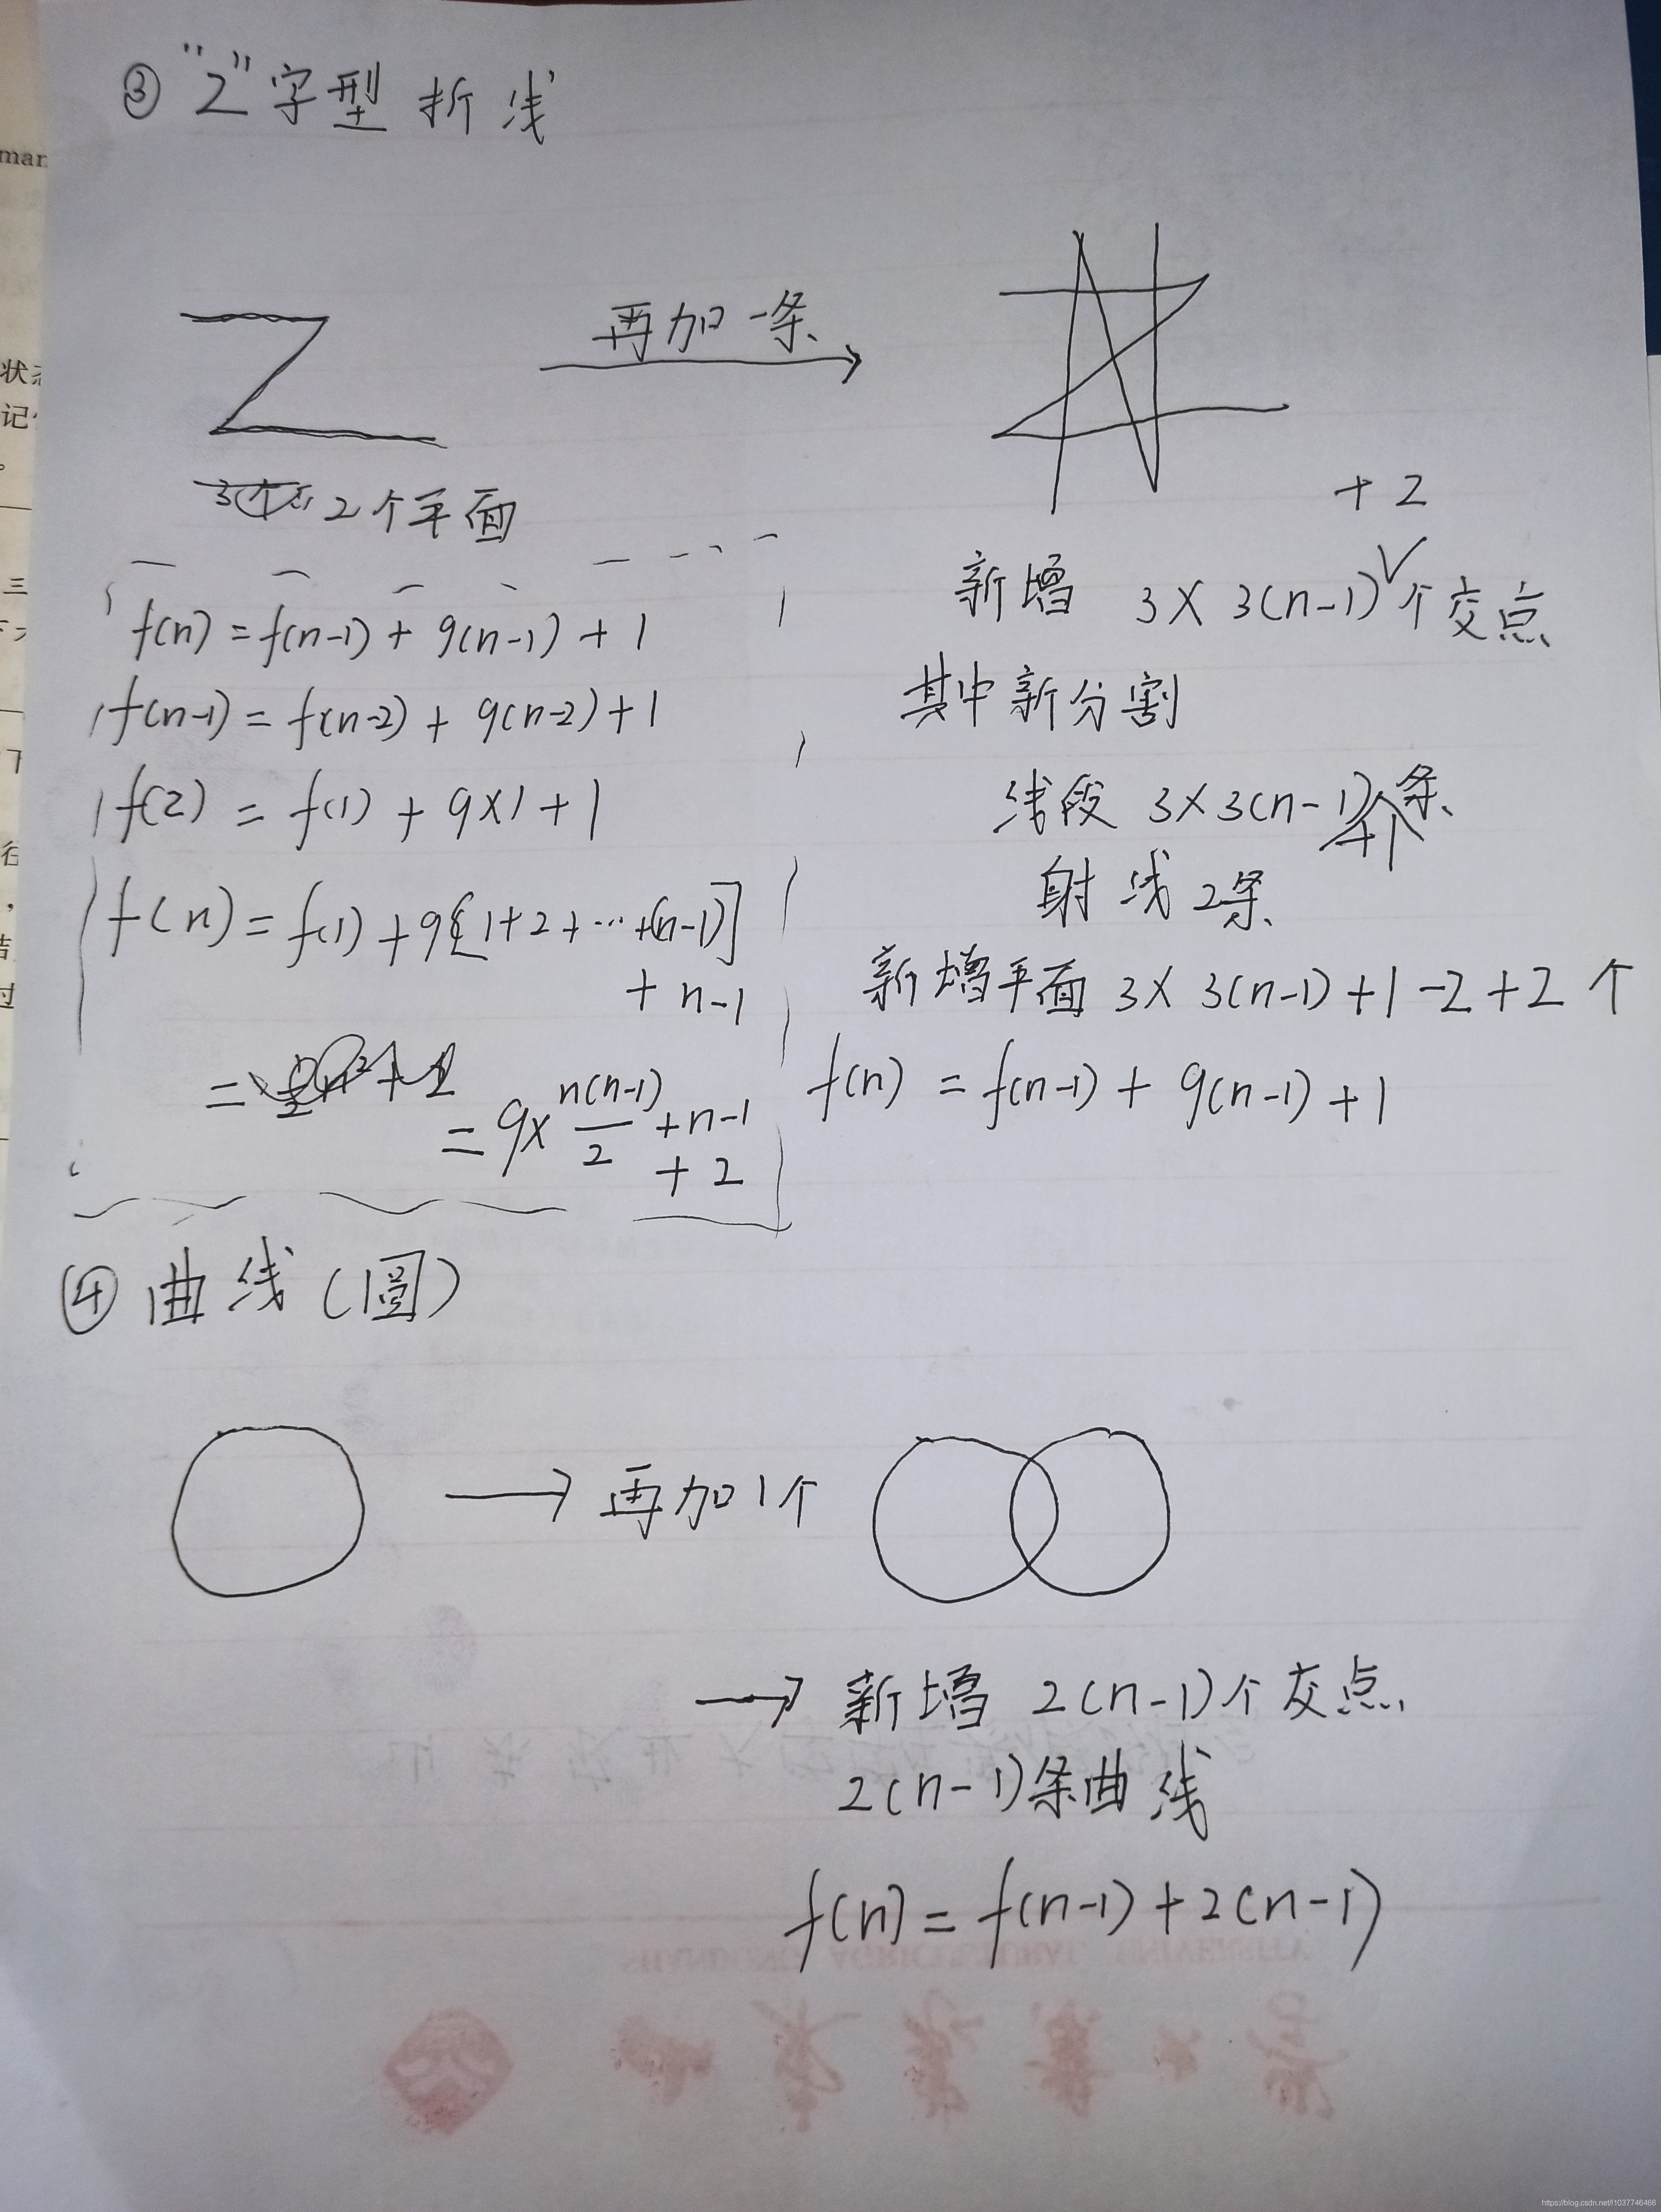 ③ "Z"字型 折线
再加一条
2个平面
+2
新增 3×3(n-1)个交点
其中新分割
线段 3×3(n-1)条
射线2条
新增平面 3×3(n-1)+1-2+2个
f(n)=f(n-1)+9(n-1)+1
f(n)=f(n-1)+9(n-1)+1
f(n-1)=f(n-2)+9(n-2)+1
f(2)=f(1)+9×1+1
f(n)=f(1)+9[1+2+…+(n-1)]
+n-1
=
=9×n(n-1)/2+n-1
+2
④ 曲线(圆)
→再加1个
→新增 2(n-1)个交点
2(n-1)条曲线
f(n)=f(n-1)+2(n-1)
SHANDONG AGRICULTURAL UNIVERSITY
man
https://blog.csdn.net/l1037746466